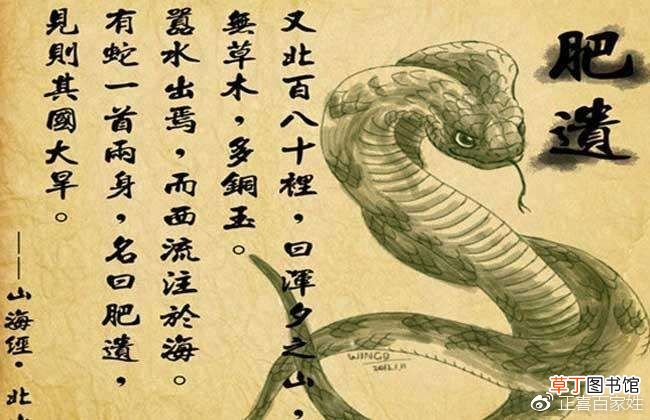 肥遺
又北百八十裡，曰渾夕之山，
無草木，多銅玉。
囂水出焉，而西流注於海。
有蛇一首兩身，名曰肥遺，
見則其國大旱。
——山海經·北
WING9
2012.1.11
草丁图书馆
@正喜百家姓